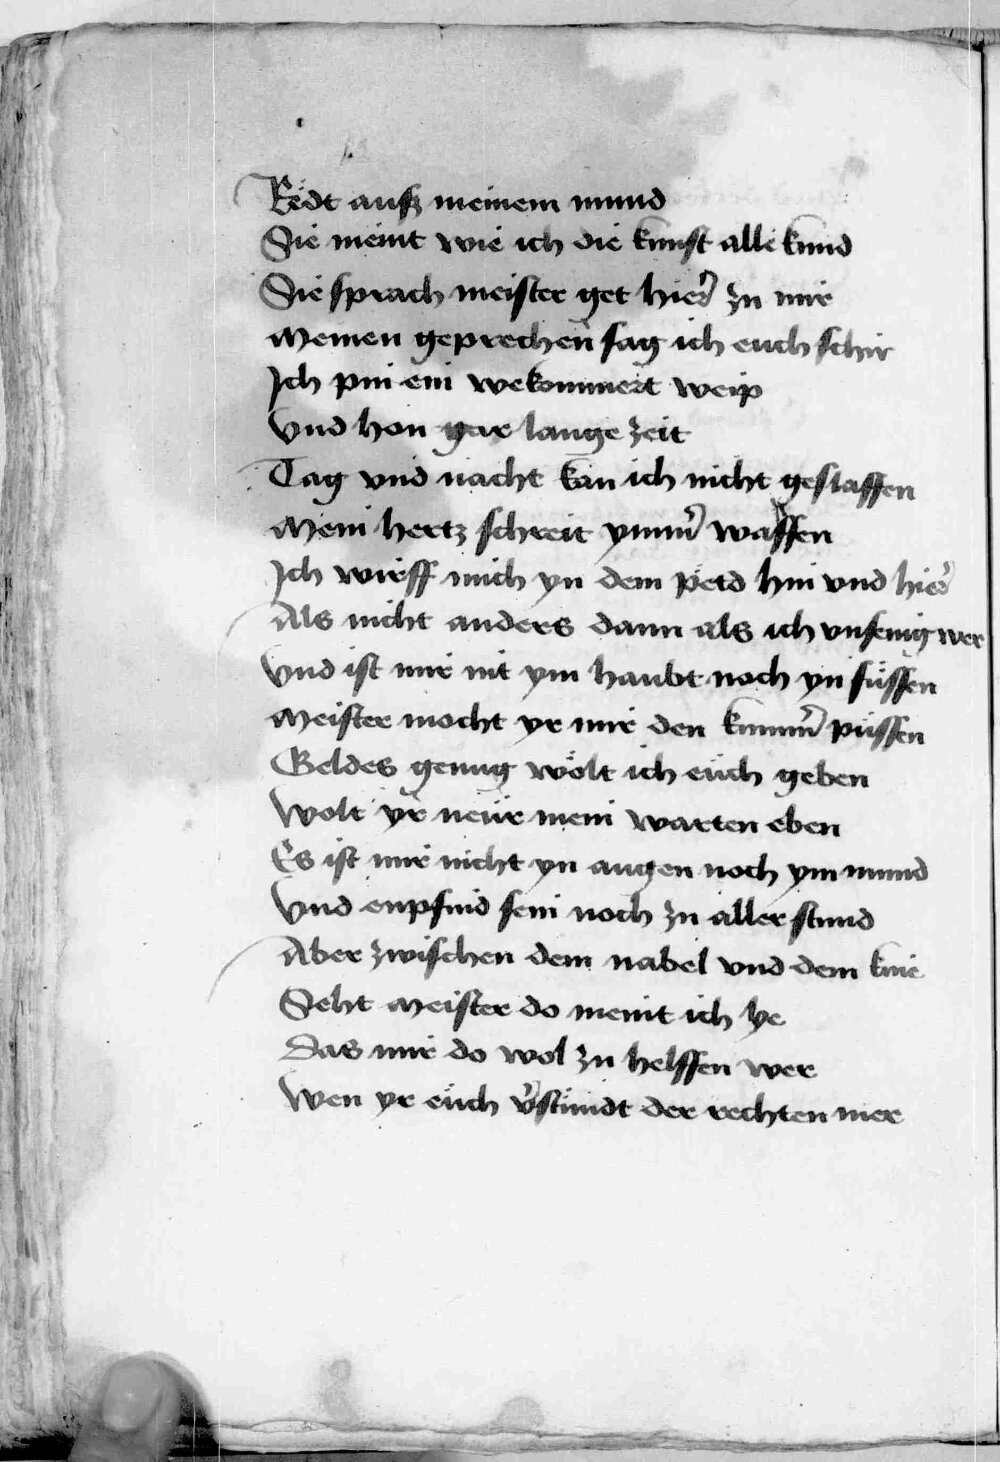 Redt auß meinem mund
Sie meint wie ich die kunst alle kund
Sie sprach meister get hier̉ zu mir
Meinen geprechen sag ich euch schir
Ich pin ein wekommert weip
Vnd hon gar lange zeit
Tag vnd nacht kan ich nicht geslaffen
Mein hertz schreit ymm̉ waffen
Ich wirff mich yn dem petd hin vnd hier̉
Als nicht anders dann als ich vnsenig wer
Vnd ist mir nit ym haubt noch yn füssen
Meister mocht yr mir den kumm̉ püssen
Geldes genug wölt ich eüch geben
Wolt yr neür mein warten eben
Es ist mir nicht yn augen noch ym mund
Vnd enpfind sein noch zu aller stund
Aber zwischen dem nabel vnd dem knie
Seht meister do meint ich hye
Das mir do wol zu helffen wer
Wen yr eüch v̉stündt der rechten mer